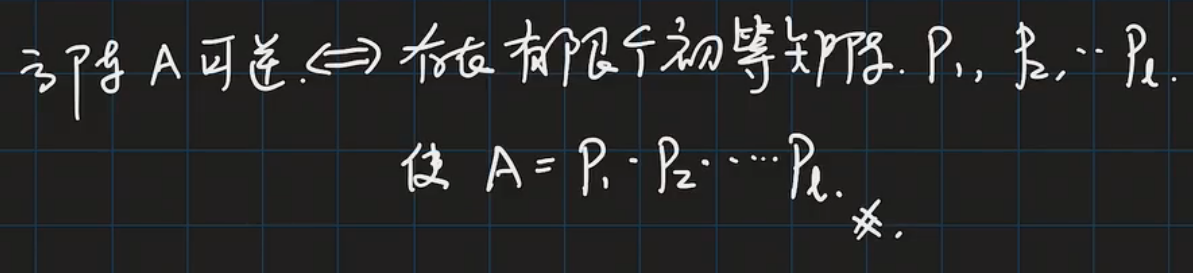 方阵 A 可逆. ⇔ 存在有限个初等矩阵. P₁, P₂, ‥ Pₗ.
使 A = P₁ · P₂ · ⋯ Pₗ.
#.